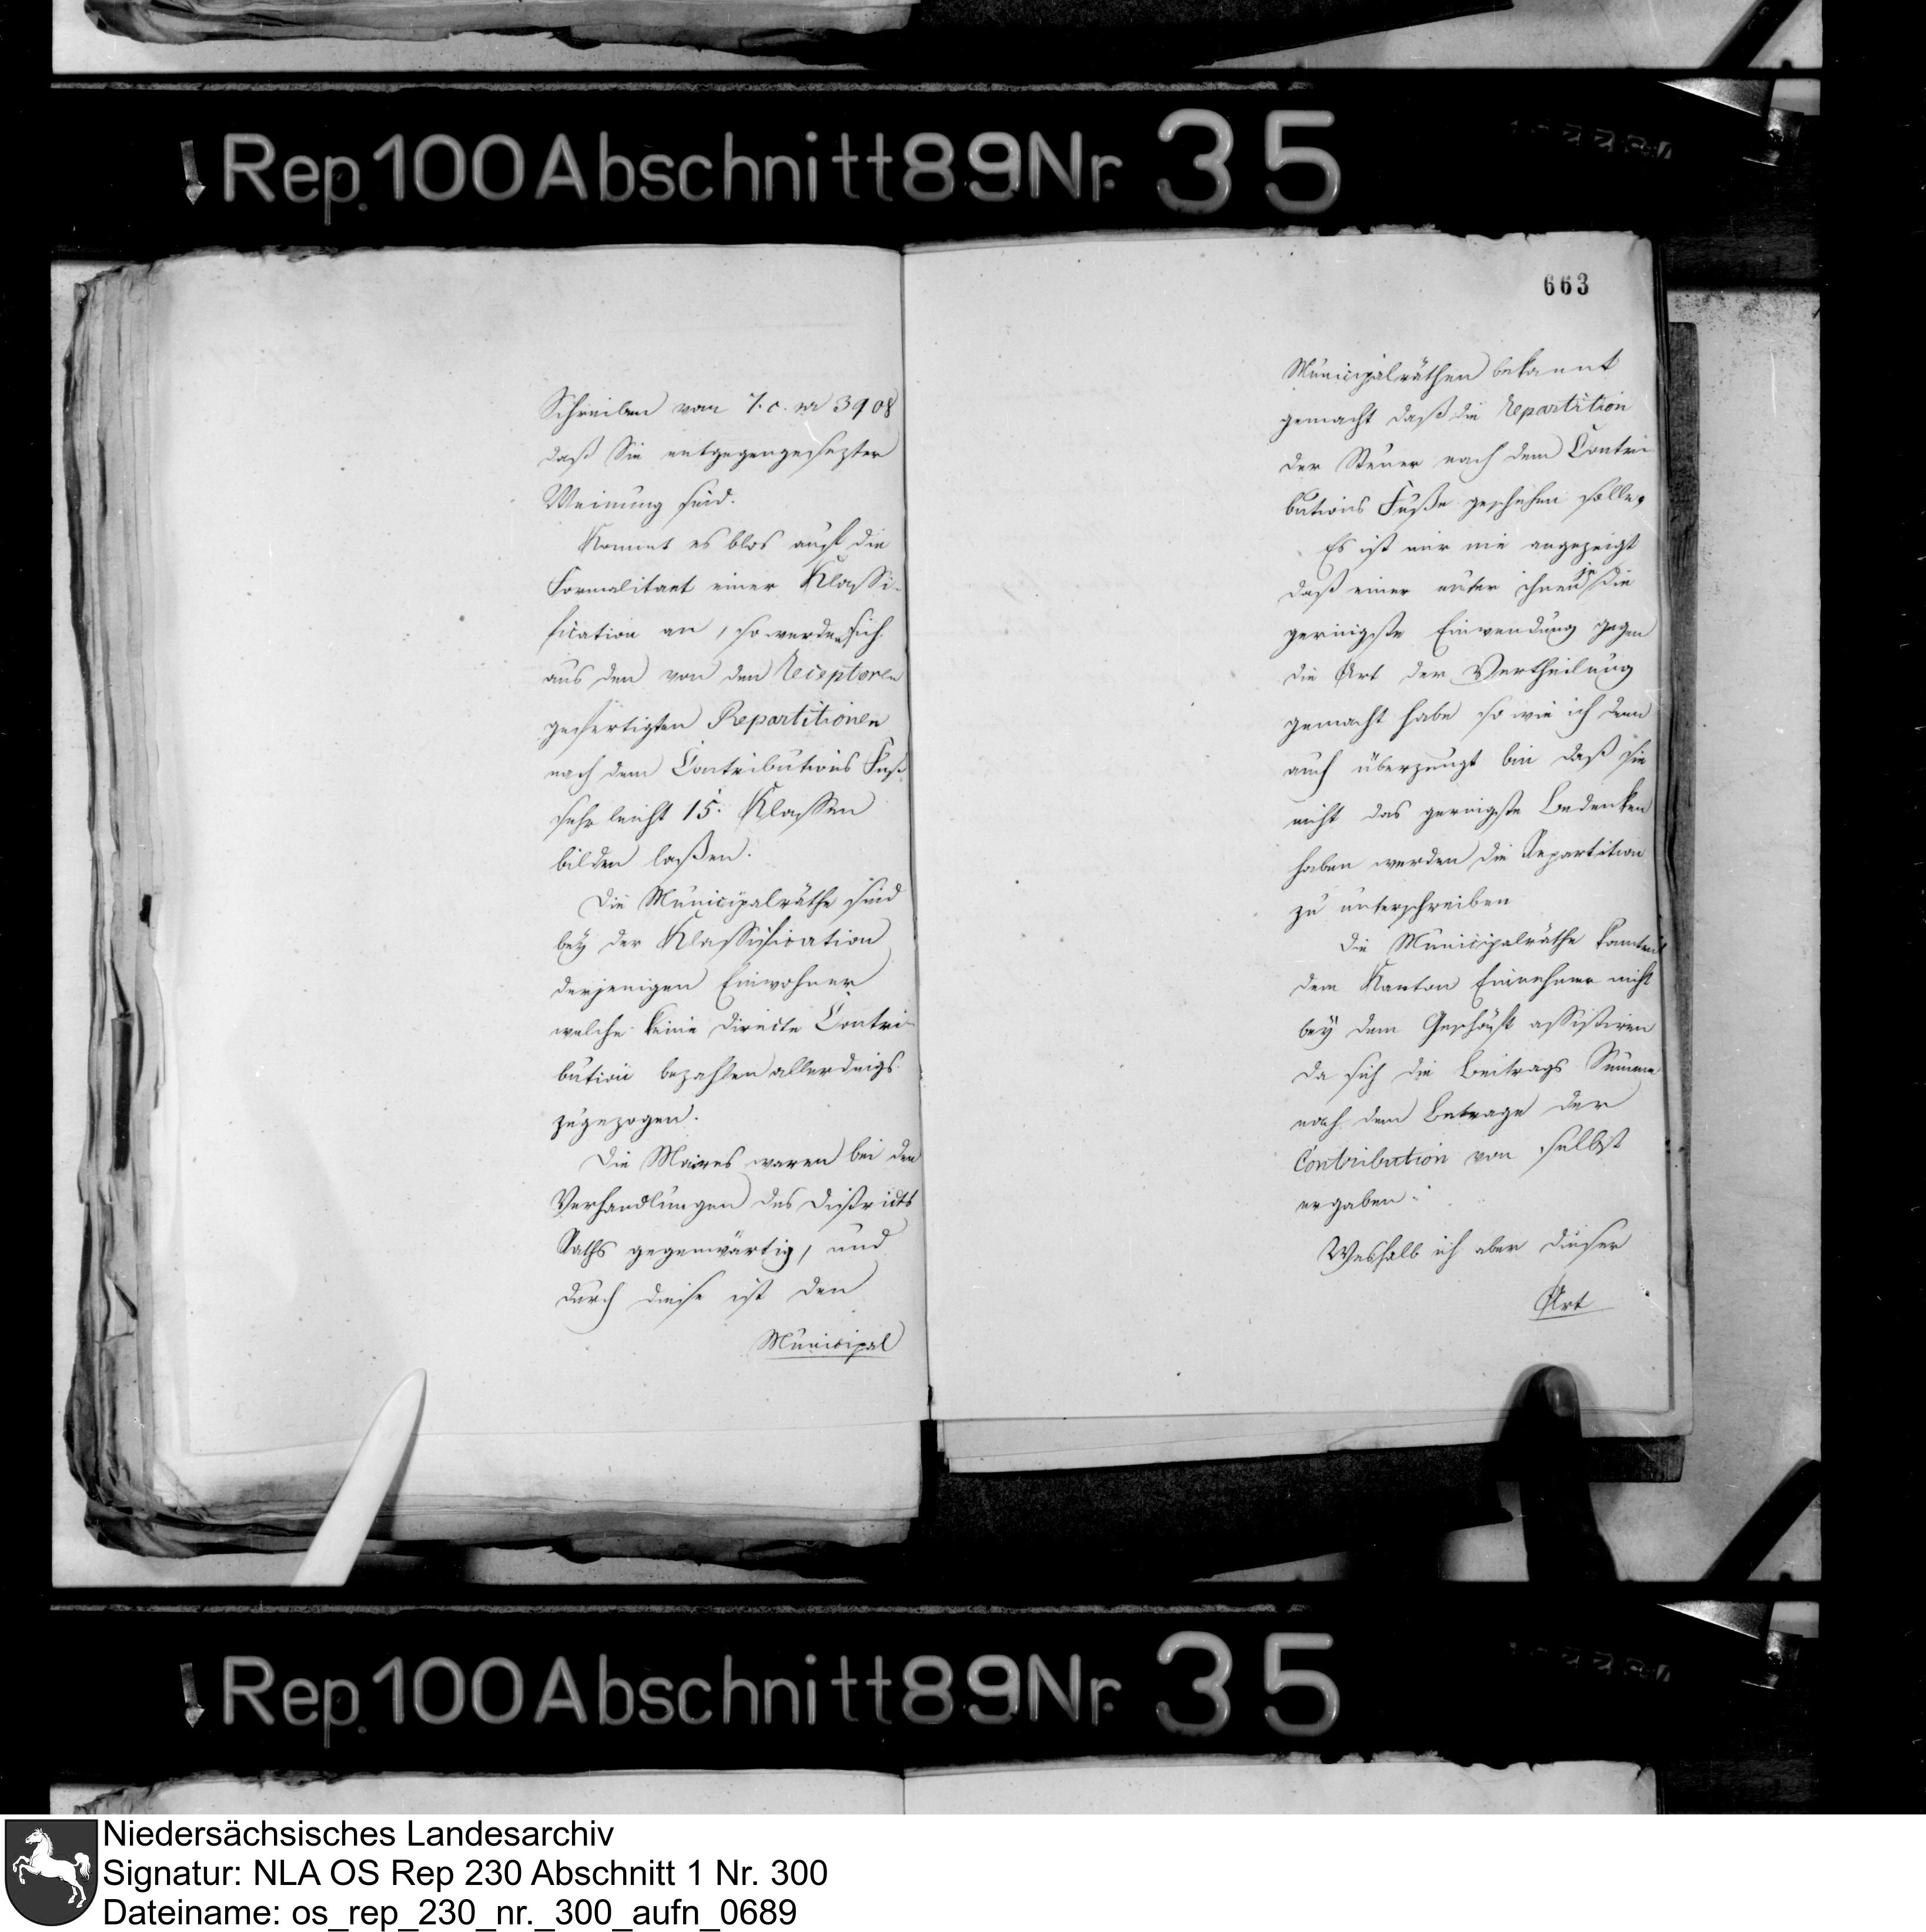 Rep. 100 Abschnitt 89 Nr. 35
Schreiben vom 7. c. nr 3908
daß Sie entgegengesezter
Meinung sind.
Kommt es blos auf die
Formalitaet einer Klassi-
fication an, so werden sich
aus den von den Receptoren
gefertigten Repartitionen
nach dem Contributions Fuß
sehr leicht 15. Klassen
bilden laßen.
Die Municipalräthe sind
bey der Klassification
derjenigen Einwohner
welche keine directe Contri-
bution bezahlen allerdings
zugezogen.
Die Maires waren bei den
Verhandlungen des Districts
Raths gegenwärtig, und
durch diese ist den
Municipal
663
Municipalräthen bekannt
gemacht daß die Repartition
der Steuer nach dem Contri
butions Fuße geschehen solle,
Es ist mir nie angezeigt
daß einer unter ihnen je die
geringste Einwendung gegen
die Art der Vertheilung
gemacht habe so wie ich denn
auch überzeugt bin daß sie
nicht das geringste Bedenken
haben werden die Repartition
zu unterschreiben
Die Municipalräthe konten
dem Kanton Einnehmer nicht
bey dem Geschäft assistiren
da sich die Beitrags Summe
nach dem Betrage der
Contribution von selbst
ergaben.
Weshalb ich aber dieser
Art
Rep. 100 Abschnitt 89 Nr. 35
Niedersächsisches Landesarchiv
Signatur: NLA OS Rep 230 Abschnitt 1 Nr. 300
Dateiname: os_rep_230_nr._300_aufn_0689